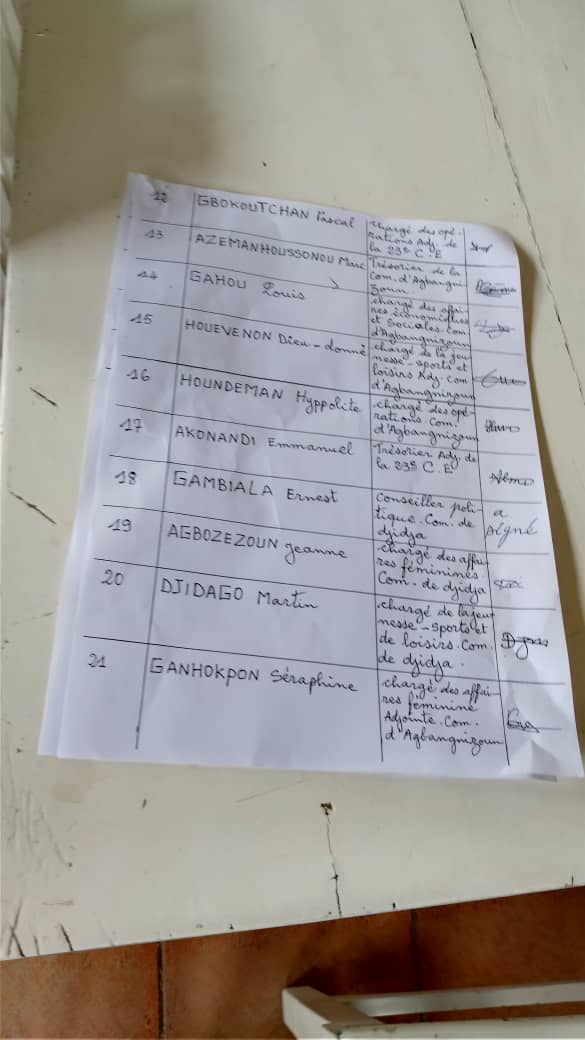 12 GBOKOUTCHAN Pascal chargé des opé-
rations Adj. de
la 23e C.E
13 AZEMANHOUSSONOU Marc Trésorier de la
Com. d'Agbangni
zoun
14 GAHOU Louis chargé des affai-
res économiques
et Sociales. Com
d'Agbangnizoun
15 HOUEVENON Dieu-donné chargé de la jeu
nesse-sports et
loisirs Adj. Com
d'Agbangnizoun
16 HOUNDEMAN Hyppolite chargé des opé-
rations. Com.
d'Agbangnizoun
17 AKONANDI Emmanuel Trésorier Adj. de
la 23e C.E
18 GAMBIALA Ernest Conseiller poli-
tique. Com. de
djidja
a
signé
19 AGBOZEZOUN Jeanne chargé des affai
res féminimes
Com. de djidja
20 DJIDAGO Martin chargé de la jeu
nesse-sports et
de loisirs. Com.
de djidja.
21 GANHOKPON Séraphine chargé des affai-
res féminine
Adjointe. Com.
d'Agbangnizoun